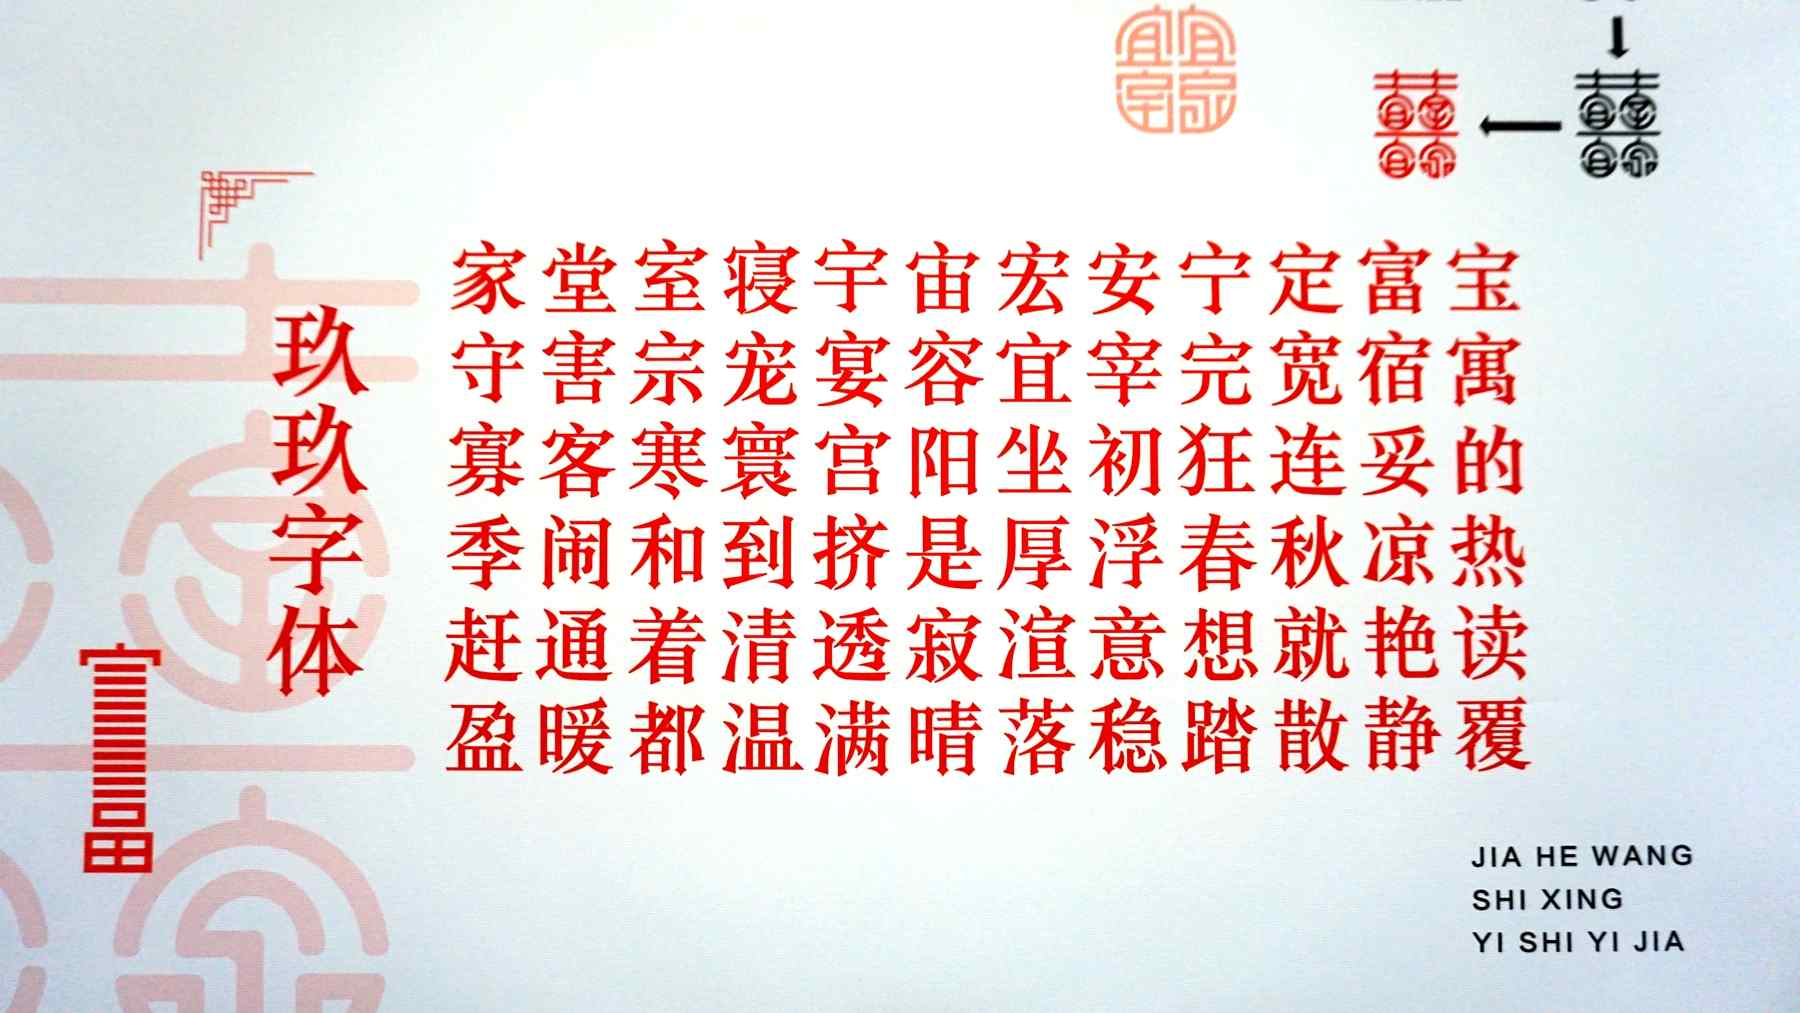 玖玖字体
家堂室寝宇宙宏安宁定富宝
守害宗宠宴容宜宰完宽宿寓
寡客寒寰宫阳坐初狂连妥的
季闹和到挤是厚浮春秋凉热
赶通着清透寂渲意想就艳读
盈暖都温满晴落稳踏散静覆
JIA HE WANG
SHI XING
YI SHI YI JIA